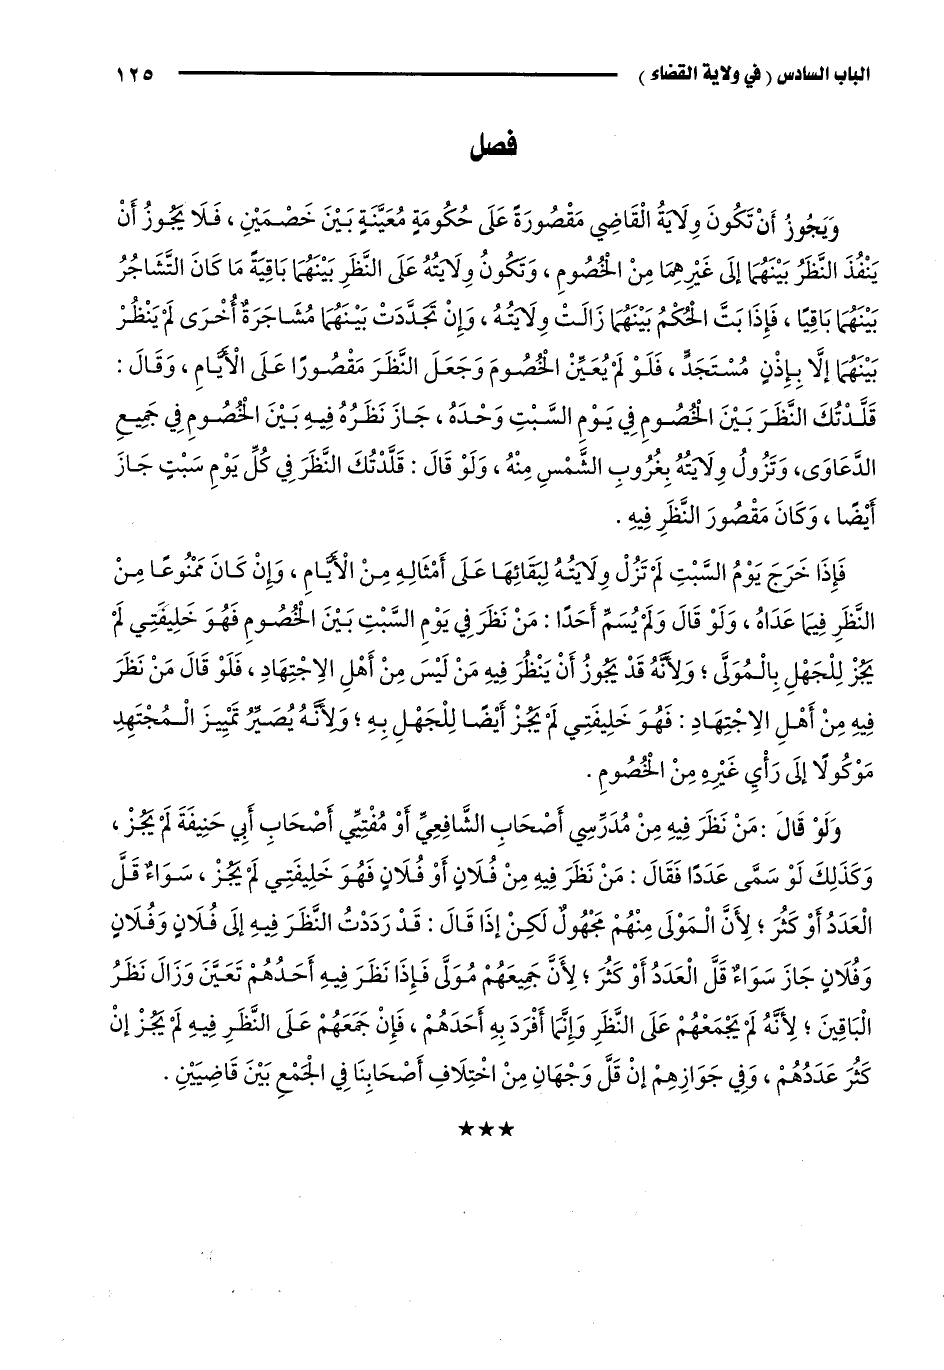 الباب السادس ( في ولاية القضاء ) ١٢٥
فصل
وَيَجُوزُ أَنْ تَكُونَ وِلَايَةُ الْقَاضِي مَقْصُورَةً عَلَى حُكُومَةٍ مُعَيَّنَةٍ بَيْنَ خَصْمَيْنِ ، فَلَا يَجُوزُ أَنْ
يَنْفُذَ النَّظَرُ بَيْنَهُمَا إلَى غَيْرِهِمَا مِنْ الْخُصُومِ ، وَتَكُونُ وِلَايَتُهُ عَلَى النَّظَرِ بَيْنَهُمَا بَاقِيَةً مَا كَانَ التَّشَاجُرُ
بَيْنَهُمَا بَاقِيًا ، فَإِذَا بَتَّ الْحُكْمُ بَيْنَهُمَا زَالَتْ وِلَايَتُهُ ، وَإِنْ تَجَدَّدَتْ بَيْنَهُمَا مُشَاجَرَةٌ أُخْرَى لَمْ يَنْظُرْ
بَيْنَهُمَا إلَّا بِإِذْنٍ مُسْتَجَدٍّ ، فَلَوْ لَمْ يُعَيِّنْ الْخُصُومَ وَجَعَلَ النَّظَرَ مَقْصُورًا عَلَى الْأَيَّامِ ، وَقَالَ :
قَلَّدْتُكَ النَّظَرَ بَيْنَ الْخُصُومِ فِي يَوْمِ السَّبْتِ وَحْدَهُ ، جَازَ نَظَرُهُ فِيهِ بَيْنَ الْخُصُومِ فِي جَمِيعِ
الدَّعَاوَى، وَتَزُولُ وِلَايَتُهُ بِغُرُوبِ الشَّمْسِ مِنْهُ ، وَلَوْ قَالَ : قَلَّدْتُكَ النَّظَرَ فِي كُلِّ يَوْمِ سَبْتٍ جَازَ
أَيْضًا ، وَكَانَ مَقْصُورَ النَّظَرِ فِيهِ .
فَإِذَا خَرَجَ يَوْمُ السَّبْتِ لَمْ تَزُلْ وِلَايَتُهُ لِبَقَائِهَا عَلَى أَمْثَالِهِ مِنْ الْأَيَّامِ ، وَإِنْ كَانَ مَمْنُوعًا مِنْ
النَّظَرِ فِيمَا عَدَاهُ ، وَلَوْ قَالَ وَلَمْ يُسَمِّ أَحَدًا : مَنْ نَظَرَ فِي يَوْمِ السَّبْتِ بَيْنَ الْخُصُومِ فَهُوَ خَلِيفَتِي لَمْ
يَجُزْ لِلْجَهْلِ بِالْمُوَلَّى ؛ وَلِأَنَّهُ قَدْ يَجُوزُ أَنْ يَنْظُرَ فِيهِ مَنْ لَيْسَ مِنْ أَهْلِ الِاجْتِهَادِ ، فَلَوْ قَالَ مَنْ نَظَرَ
فِيهِ مِنْ أَهْلِ الِاجْتِهَادِ : فَهُوَ خَلِيفَتِي لَمْ يَجُزْ أَيْضًا لِلْجَهْلِ بِهِ ؛ وَلِأَنَّهُ يُصَيِّرُ تَمْيِيزَ الْمُجْتَهِدِ
مَوْكُولًا إلَى رَأْيِ غَيْرِهِ مِنْ الْخُصُومِ .
وَلَوْ قَالَ :مَنْ نَظَرَ فِيهِ مِنْ مُدَرِّسِي أَصْحَابِ الشَّافِعِيِّ أَوْ مُفْتِيِّي أَصْحَابِ أَبِي حَنِيفَةَ لَمْ يَجُزْ ،
وَكَذَلِكَ لَوْ سَمَّى عَدَدًا فَقَالَ : مَنْ نَظَرَ فِيهِ مِنْ فُلَانٍ أَوْ فُلَانٍ فَهُوَ خَلِيفَتِي لَمْ يَجُزْ ، سَوَاءٌ قَلَّ
الْعَدَدُ أَوْ كَثُرَ ؛ لِأَنَّ الْمَوْلَى مِنْهُمْ مَجْهُولٌ لَكِنْ إذَا قَالَ : قَدْ رَدَدْتُ النَّظَرَ فِيهِ إلَى فُلَانٍ وَفُلَانٍ
وَفُلَانٍ جَازَ سَوَاءٌ قَلَّ الْعَدَدُ أَوْ كَثُرَ ؛ لِأَنَّ جَمِيعَهُمْ مُوَلًّى فَإِذَا نَظَرَ فِيهِ أَحَدُهُمْ تَعَيَّنَ وَزَالَ نَظَرُ
الْبَاقِينَ ؛ لِأَنَّهُ لَمْ يَجْمَعْهُمْ عَلَى النَّظَرِ وَإِنَّمَا أَفْرَدَ بِهِ أَحَدَهُمْ ، فَإِنْ جَمَعَهُمْ عَلَى النَّظَرِ فِيهِ لَمْ يَجُزْ إنْ
كَثُرَ عَدَدُهُمْ ، وَفِي جَوَازِهِمْ إنْ قَلَّ وَجْهَانِ مِنْ اخْتِلَافِ أَصْحَابِنَا فِي الْجَمْعِ بَيْنَ قَاضِيَيْنِ .
★★★